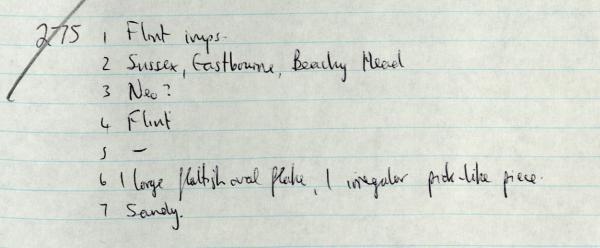 275 1 Flint imps.
2 Sussex, Eastbourne, Beachy Head
3 Neo?
4 Flint
5 –
6 1 large flattish oval flake, 1 irregular pick-like piece.
7 Sandy.